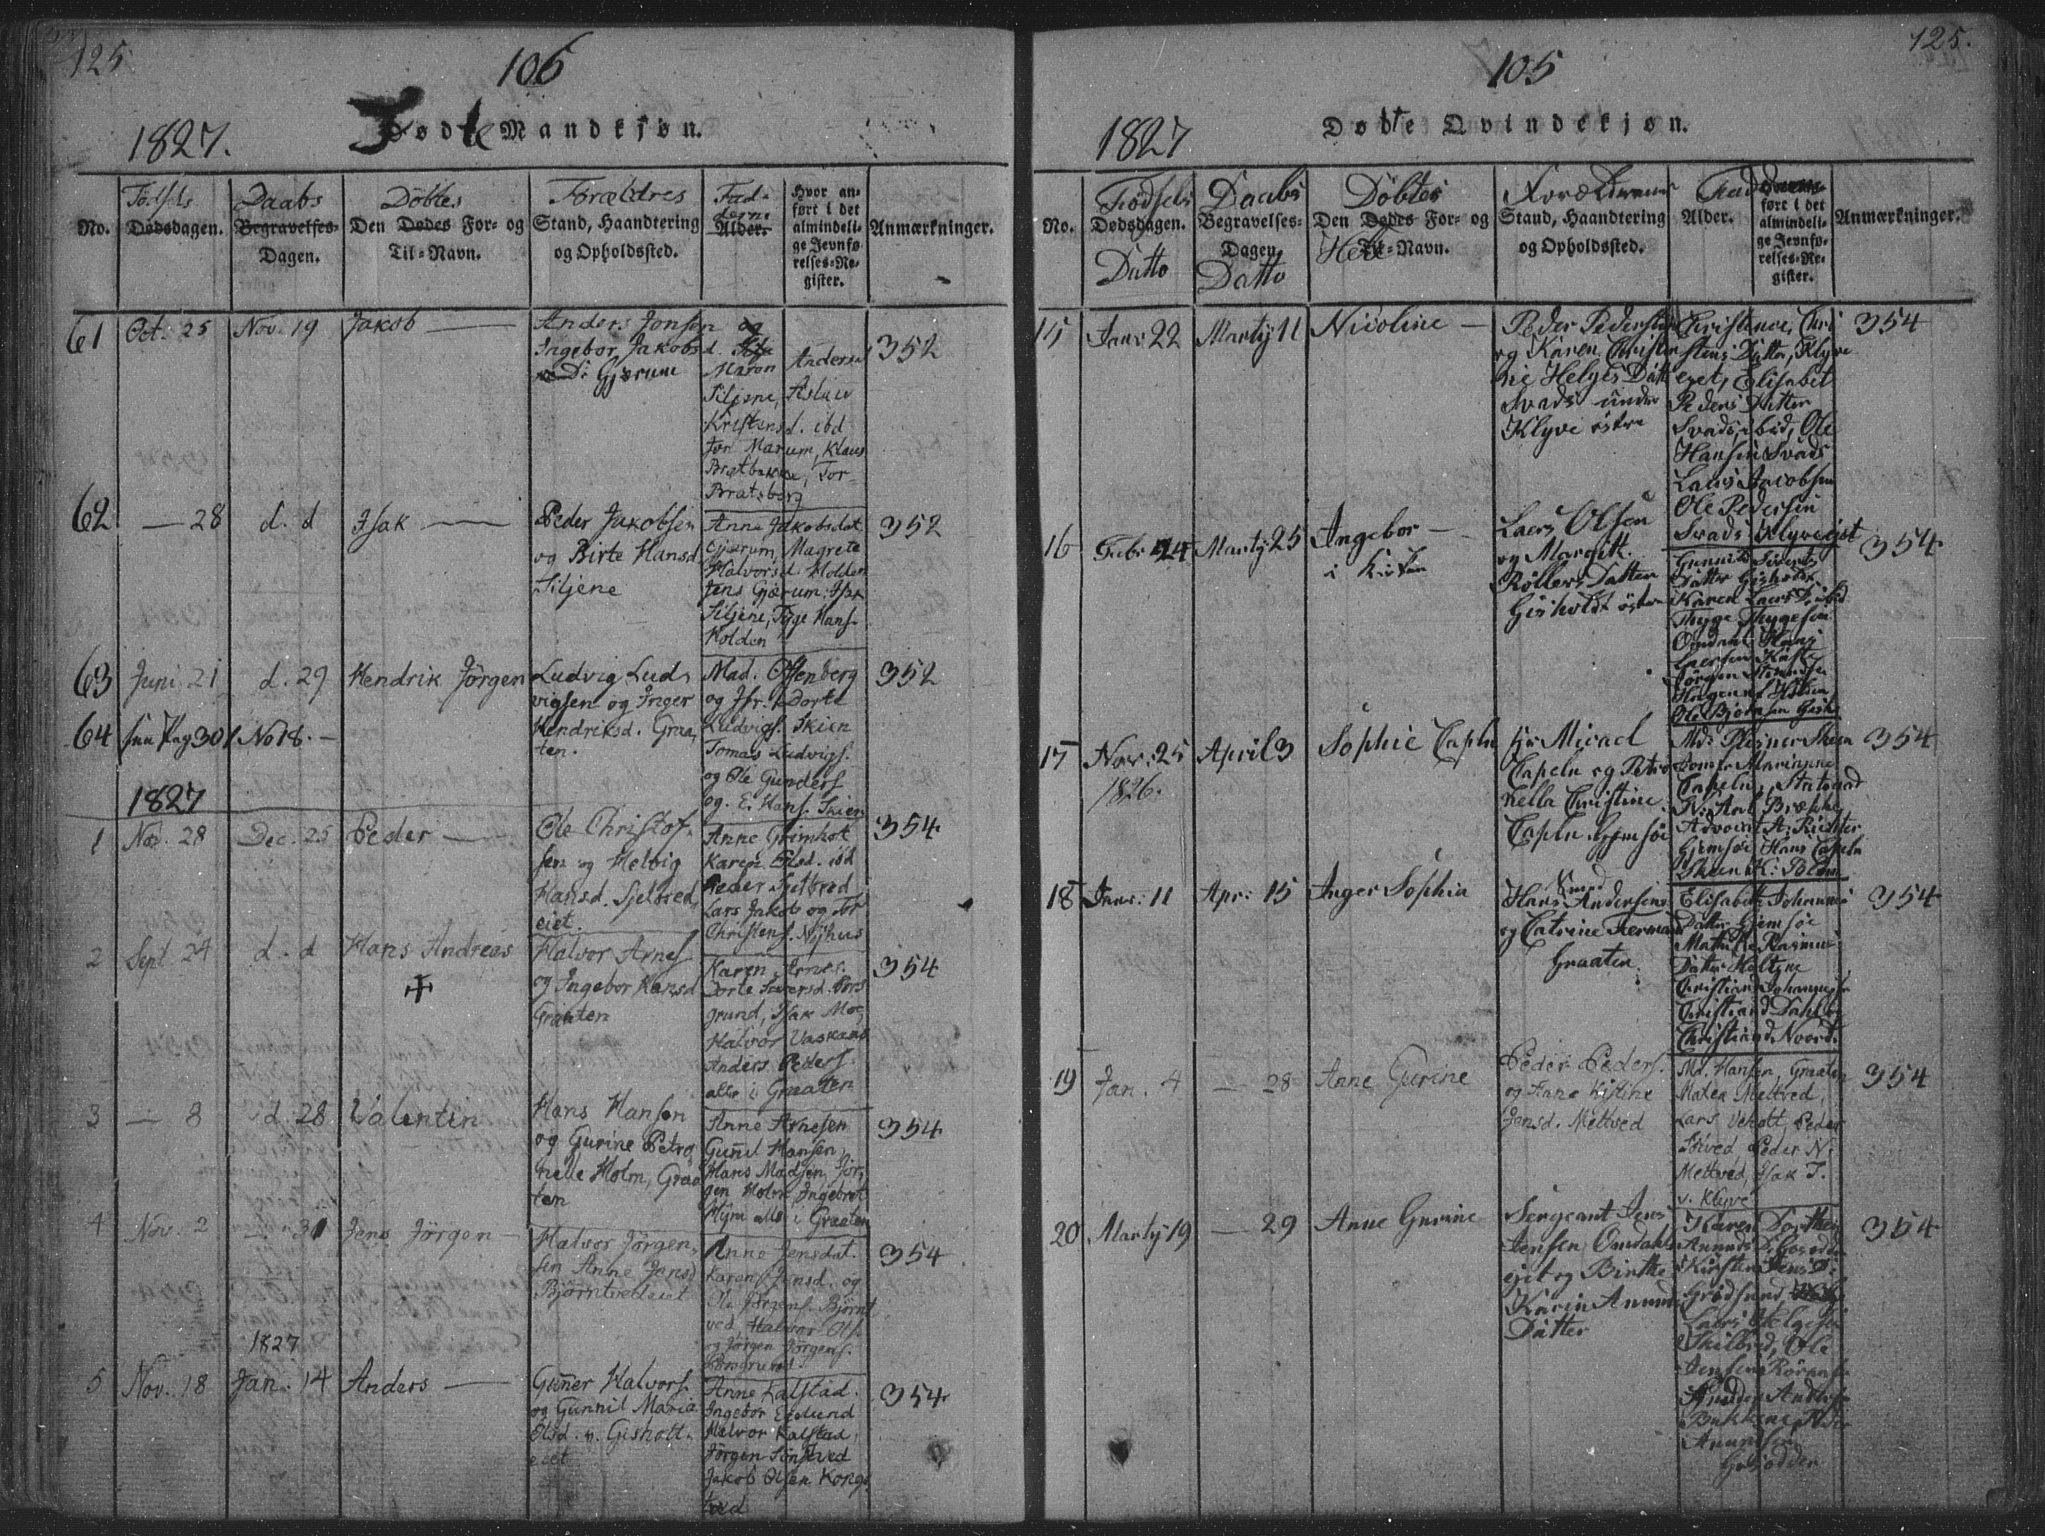 125
106
1827.
Fødte Mandkjøn.
No.
Fødsels
Dødsdagen.
Daabs
Begravelses-
Dagen.
Døbtes
Den Dødes For- og
Til-Navn.
Forældres
Stand, Haandtering
og Opholdssted.
Fad-
derne
Alder.
Hvor an-
ført i det
almindeli-
ge Jevnfø-
relses-Re-
gister.
Anmærkninger.
61 Oct. 25 Nov. 19 Jakob
Anders Jonsen og
Ingebor Jakobsd.
Gjerum
Maren Andersd
Siljene, Aslaw
Kristensd. ibd
Jon Marum, Klaus
Brætbakke, Tor
Bratsberg
352
62 — 28 d. d Isak
Peder Jakobsen
og Birte Hansd
Siljene
Anne Jakobsdat
Gjerum, Magrete
Halvorsd. Holden
Jens Gjærum, Isak
Siljene, Tyge Hans.
Holden
352
63 Juni 21 d. 29 Hendrik Jörgen
Ludvig Lud-
vigsen og Inger
Hendriksd. Graa-
ten.
Mad. Offenberg
og Jfr. Dorte
Ludvigs. Skien
Tomas Ludvigs.
og Ole Gunders
og E. Hans. Skien
352
64 Pag 301 No 18.
1827
1 Nov. 28 Dec. 25 Peder
Ole Christof-
sen og Helvig
Hansd. Sjelbred,
eiet.
Anne Grimholt
Karen Olsd. ibd
Peder Sjelbred
Lars Jakob og Tor
Christens. Nyhus
354
2 Sept. 24 d. d Hans Andreas
Halvor Arnes
og Ingebor Hansd
Graaten
Karen Arnes.
Dorte Siversd. Pors
grund, Isak Moe,
Halvor Vaskaas
Anders Peders.
alle i Graaten
354
3 — 8 d. 28 Valentin
Hans Hansen
og Gurine Petro
nelle Holm, Graa
ten
Anne Arnesen
Gunil Hansen,
Hans Madsen, Jør,
gen Holm Ingebret
Hÿm alle i Graaten
354
4 Nov. 2 — 31 Jens Jörgen
Halvor Jörgen,
sen Anne Jensd
Björntvedeiet
Anne Jensdat.
Karen Jensd. og
Ole Jørgens. Björnt
ved, Halvor Ols.
og Jørgen Jørgens.
Porsgrund.
354
1827
5 Nov. 18 Jan. 14 Anders
Guner Halvors.
og Gunnil Maria
Olsd. v. Gisholt.
eiet
Anne Kalstad.
Ingebor Eidlund
Halvor Kalstad,
Jørgen Tönsved
Jakob Olsen Konge
rød
354
125.
105
1827
Døbte Qvindekjøn.
No.
Fødsels
Dødsdagen.
Datto
Daabs
Begravelses-
Dagen.
Datto
Døbtes
Den Dødes For- og
Til-Navn.
Hele
Forældrenes
Stand, Haandtering
og Opholdssted.
Fadd
Alder.
ført i det
almindeli-
ge Jevnfø-
relses-Re-
gister.
Anmærkninger.
15 Janr: 22 Marty 11 Nicoline
Peder Pedersen
og Karen Christen
tie Helges Datt
Svads under
Klyve østre
Christence, Chri
stens Datter, Klyve
eyet, Elisabet
Peders Datter
Svads, ibid, Ole
Hansen Svads
Lars Jacobsen
Ole Pedersen
Svads Klyveejet
354
16 Febr 24 Marty 25 Ingebor
i Kirken
Laers Olsen
og Margith
Röllers Datter
Gisholdt østre
Gunnild Siverts
Datter Gisholdt
Karen Laers D. ibid
Thyge Thygesen
Omdal Hans
Laersen Kaste
Jörgen
Holden
Ole Biörnsen Gish:
354
17 Novr: 25
1826.
April 3 Sophie Capeln
Hr Micael
Capeln og Petro
nella Christine
Capeln Gjemsöe
Md: Plesner Skeen
Jomfr Marianne
Capeln, Statsraad
N: Aal Bræpke
Advocat A: Richter
Gjemsöe Hans Capeln
Skeen
354
18 Janr: 11 Apr: 15 Inger Sophia
Knud
Hans Andersens
og Catrine Ferman
Graaten.
Elisabeth Johannis
Datter Gjemsöe
Mathilde Rasmus
Datter Holtene
Christian Johannesse
Christian Dahl og
Christian Noord.
354
19 Jan. 4 — 28 Anne Gurine
Peder Peders.
og Anne Kistine
Jensd. Meltved
Md. Hansen, Graaten
Maten Meltved,
Lars Veholt, Peder
Stived Peder N.
Meltved, Isak T.
v. Klyve
354
20 Marty 19 — 29 Anne Gurine
Sergeant Jens
Jensen Omdals
ejet og Birthe
Karin Anund
Datter
Karen Dorthea
Anunds D: Gosodden
Kirsten Jens D:
Grödsund
Laers Helgesen
Skilbred, Ole
Jensen Röraas
Anders
Bukkene, Peder
Anundsen
Gosodden
354